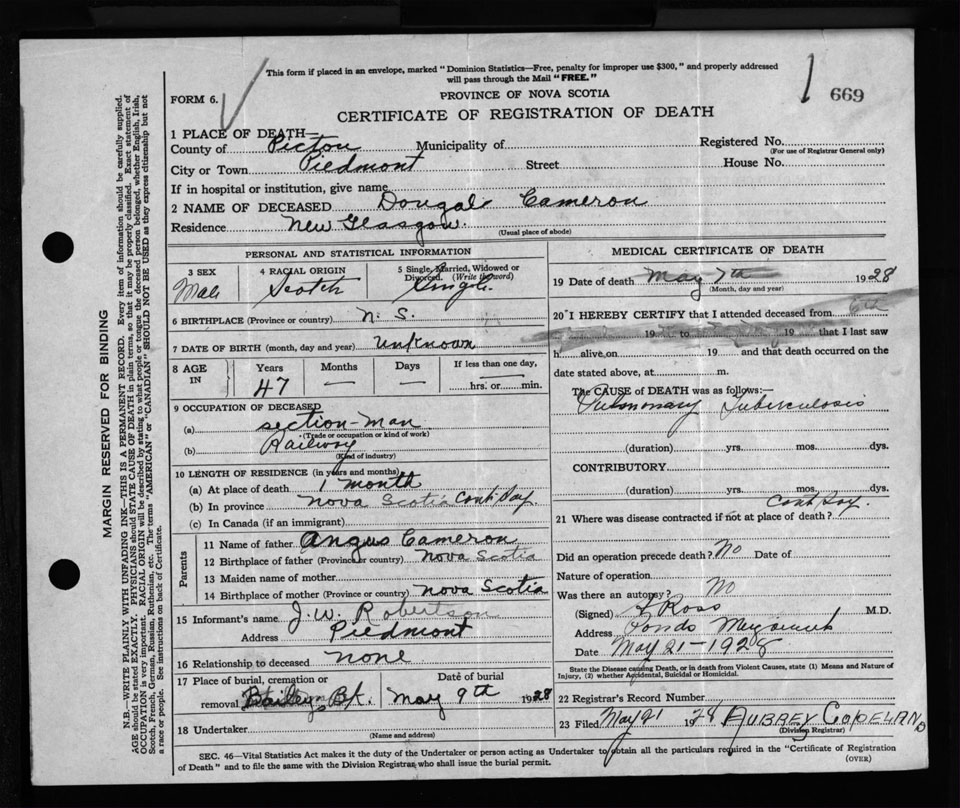 This form if placed in an envelope, marked "Dominion Statistics—Free, penalty for improper use $300," and properly addressed
will pass through the Mail "FREE."
FORM 6.
PROVINCE OF NOVA SCOTIA
669
CERTIFICATE OF REGISTRATION OF DEATH
1 PLACE OF DEATH—
County of Pictou Municipality of Registered No.
(For use of Registrar General only)
City or Town Piedmont Street House No.
If in hospital or institution, give name
2 NAME OF DECEASED Dougal Cameron
Residence New Glasgow.
(Usual place of abode)
PERSONAL AND STATISTICAL INFORMATION
3 SEX 4 RACIAL ORIGIN 5 Single, Married, Widowed or
Divorced. (Write the word)
Male Scotch Single
6 BIRTHPLACE (Province or country) N. S.
7 DATE OF BIRTH (month, day and year) Unknown
8 AGE IN Years Months Days If less than one day,
47 — — hrs. or min.
9 OCCUPATION OF DECEASED
(a) section-man
(Trade or occupation or kind of work)
(b) Railway
(Kind of industry)
10 LENGTH OF RESIDENCE (in years and months)
(a) At place of death 1 month
(b) In province Nova Scotia
(c) In Canada (if an immigrant)
Parents
11 Name of father Angus Cameron
12 Birthplace of father (Province or country) Nova Scotia
13 Maiden name of mother
14 Birthplace of mother (Province or country) Nova Scotia
15 Informant's name J. W. Robertson
Address Piedmont
16 Relationship to deceased none
17 Place of burial, cremation or Date of burial
removal Baileys Bk. May 9th 1928
18 Undertaker
(Name and address)
MEDICAL CERTIFICATE OF DEATH
19 Date of death May 7th 1928
(Month, day and year)
20 I HEREBY CERTIFY that I attended deceased from
19 to 19 that I last saw
h alive, on 19 and that death occurred on the
date stated above, at m.
The CAUSE of DEATH was as follows:—
Pulmonary Tuberculosis
(duration) yrs. mos. dys.
CONTRIBUTORY
(duration) yrs. mos. dys.
21 Where was disease contracted if not at place of death?
Did an operation precede death? No Date of
Nature of operation
Was there an autopsy? No
(Signed) Ross M.D.
Address
Date May 21-1928
State the Disease causing Death, or in death from Violent Causes, state (1) Means and Nature of
Injury, (2) whether Accidental, Suicidal or Homicidal.
22 Registrar's Record Number
23 Filed May 21 1928 AUBREY COPELAND
(Division Registrar)
SEC. 46—Vital Statistics Act makes it the duty of the Undertaker or person acting as Undertaker to obtain all the particulars required in the "Certificate of Registration
of Death" and to file the same with the Division Registrar who shall issue the burial permit.
(OVER)
MARGIN RESERVED FOR BINDING
N.B.—WRITE PLAINLY WITH UNFADING INK—THIS IS A PERMANENT RECORD. Every item of information should be carefully supplied.
AGE should be stated EXACTLY. PHYSICIANS should STATE CAUSE OF DEATH in plain terms, so that it may be properly classified. Exact statement of
OCCUPATION is very important. RACIAL ORIGIN will be described by stating to what people or tongue the deceased person belonged, whether English, Irish,
Scotch, French, German, Russian, Ruthenian, etc. The terms "AMERICAN" or "CANADIAN" SHOULD NOT BE USED as they express citizenship but not
a race or people. See instructions on back of Certificate.